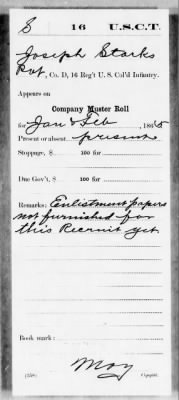 S 16 U.S.C.T.
Joseph Starks
Pvt, Co. D, 16 Reg't U. S. Col'd Infantry.
Appears on
Company Muster Roll
for Jan & Feb, 1865
Present or absent present
Stoppage, $ 100 for
Due Gov't, $ 100 for
Remarks: Enlistment papers
not furnished for
this Recruit yet
Book mark:
May
(358) Copyist.